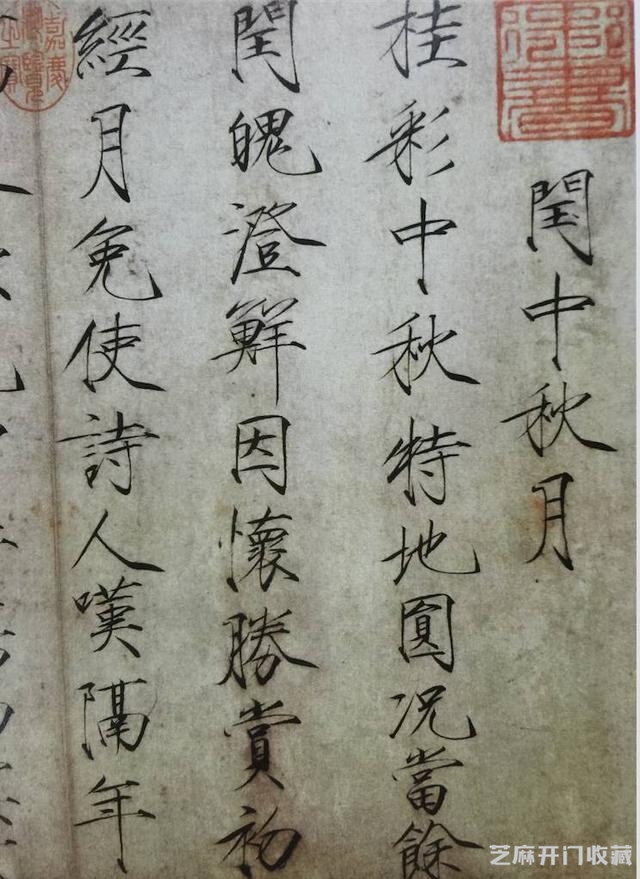 閏中秋月
桂彩中秋特地圓况當餘
閏魄澄鮮因懷勝賞初
經月免使詩人嘆隔年
芝麻开门收藏